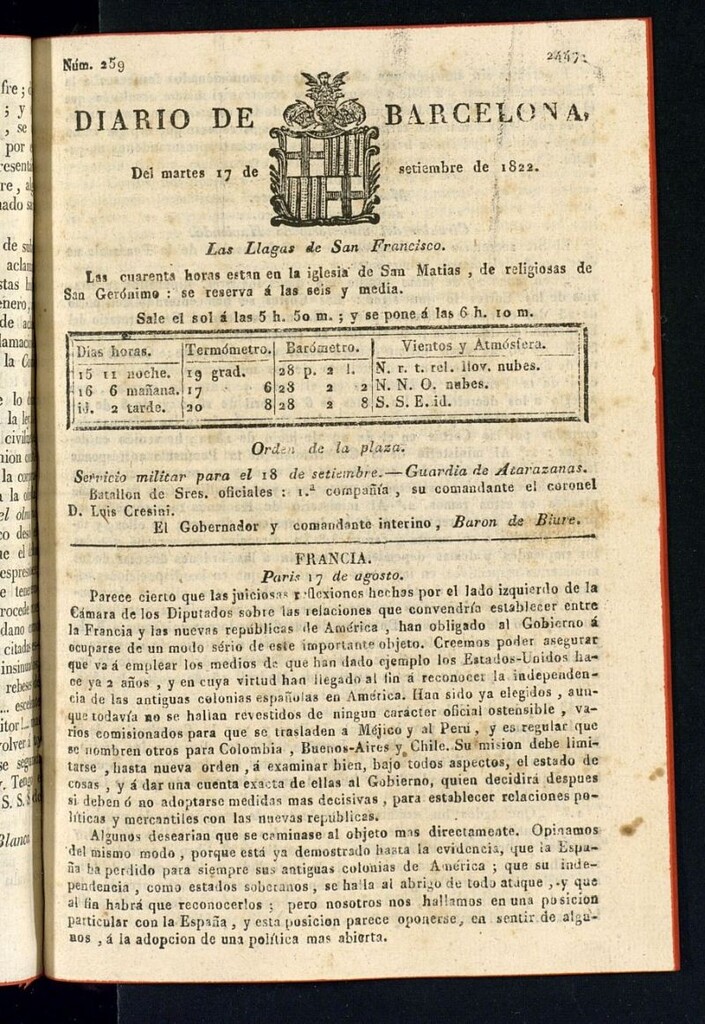 Núm. 259 2447
DIARIO DE BARCELONA,
Del martes 17 de setiembre de 1822.
Las Llagas de San Francisco.
Las cuarenta horas estan en la iglesia de San Matias, de religiosas de
San Gerónimo: se reserva á las seis y media.
Sale el sol á las 5 h. 50 m.; y se pone á las 6 h. 10 m.
Dias horas. Termómetro. Barómetro. Vientos y Atmósfera.
15 11 noche. 19 grad. 28 p. 2 l. N. r. t. rel. llov. nubes.
16 6 mañana. 17 6 28 2 2 N. N. O. nubes.
id. 2 tarde. 20 8 28 2 8 S. S. E. id.
Orden de la plaza.
Servicio militar para el 18 de setiembre.—Guardia de Atarazanas.
Batallon de Sres. oficiales: 1.ª compañía, su comandante el coronel
D. Luis Cresini.
El Gobernador y comandante interino, Baron de Biure.
FRANCIA.
Paris 17 de agosto.
Parece cierto que las juiciosas reflexiones hechas por el lado izquierdo de la
Cámara de los Diputados sobre las relaciones que convendría establecer entre
la Francia y las nuevas repúblicas de América, han obligado al Gobierno á
ocuparse de un modo sério de este importante objeto. Creemos poder asegurar
que va á emplear los medios de que han dado ejemplo los Estados-Unidos ha-
ce ya 2 años, y en cuya virtud han llegado al fin á reconocer la independen-
cia de las antiguas colonias españolas en América. Han sido ya elegidos, aun-
que todavía no se hallan revestidos de ningun carácter oficial ostensible, va-
rios comisionados para que se trasladen á Méjico y al Perú, y es regular que
se nombren otros para Colombia, Buenos-Aires y Chile. Su mision debe limi-
tarse, hasta nueva orden, á examinar bien, bajo todos aspectos, el estado de
cosas, y á dar una cuenta exacta de ellas al Gobierno, quien decidirá despues
si deben ó no adoptarse medidas mas decisivas, para establecer relaciones po-
líticas y mercantiles con las nuevas repúblicas.
Algunos desearian que se caminase al objeto mas directamente. Opinamos
del mismo modo, porque está ya demostrado hasta la evidencia, que la Espa-
ña ha perdido para siempre sus antiguas colonias de América; que su inde-
pendencia, como estados soberanos, se halla al abrigo de todo ataque, y que
al fin habrá que reconocerlos; pero nosotros nos hallamos en una posicion
particular con la España, y esta posicion parece oponerse, en sentir de algu-
nos, á la adopcion de una política mas abierta.